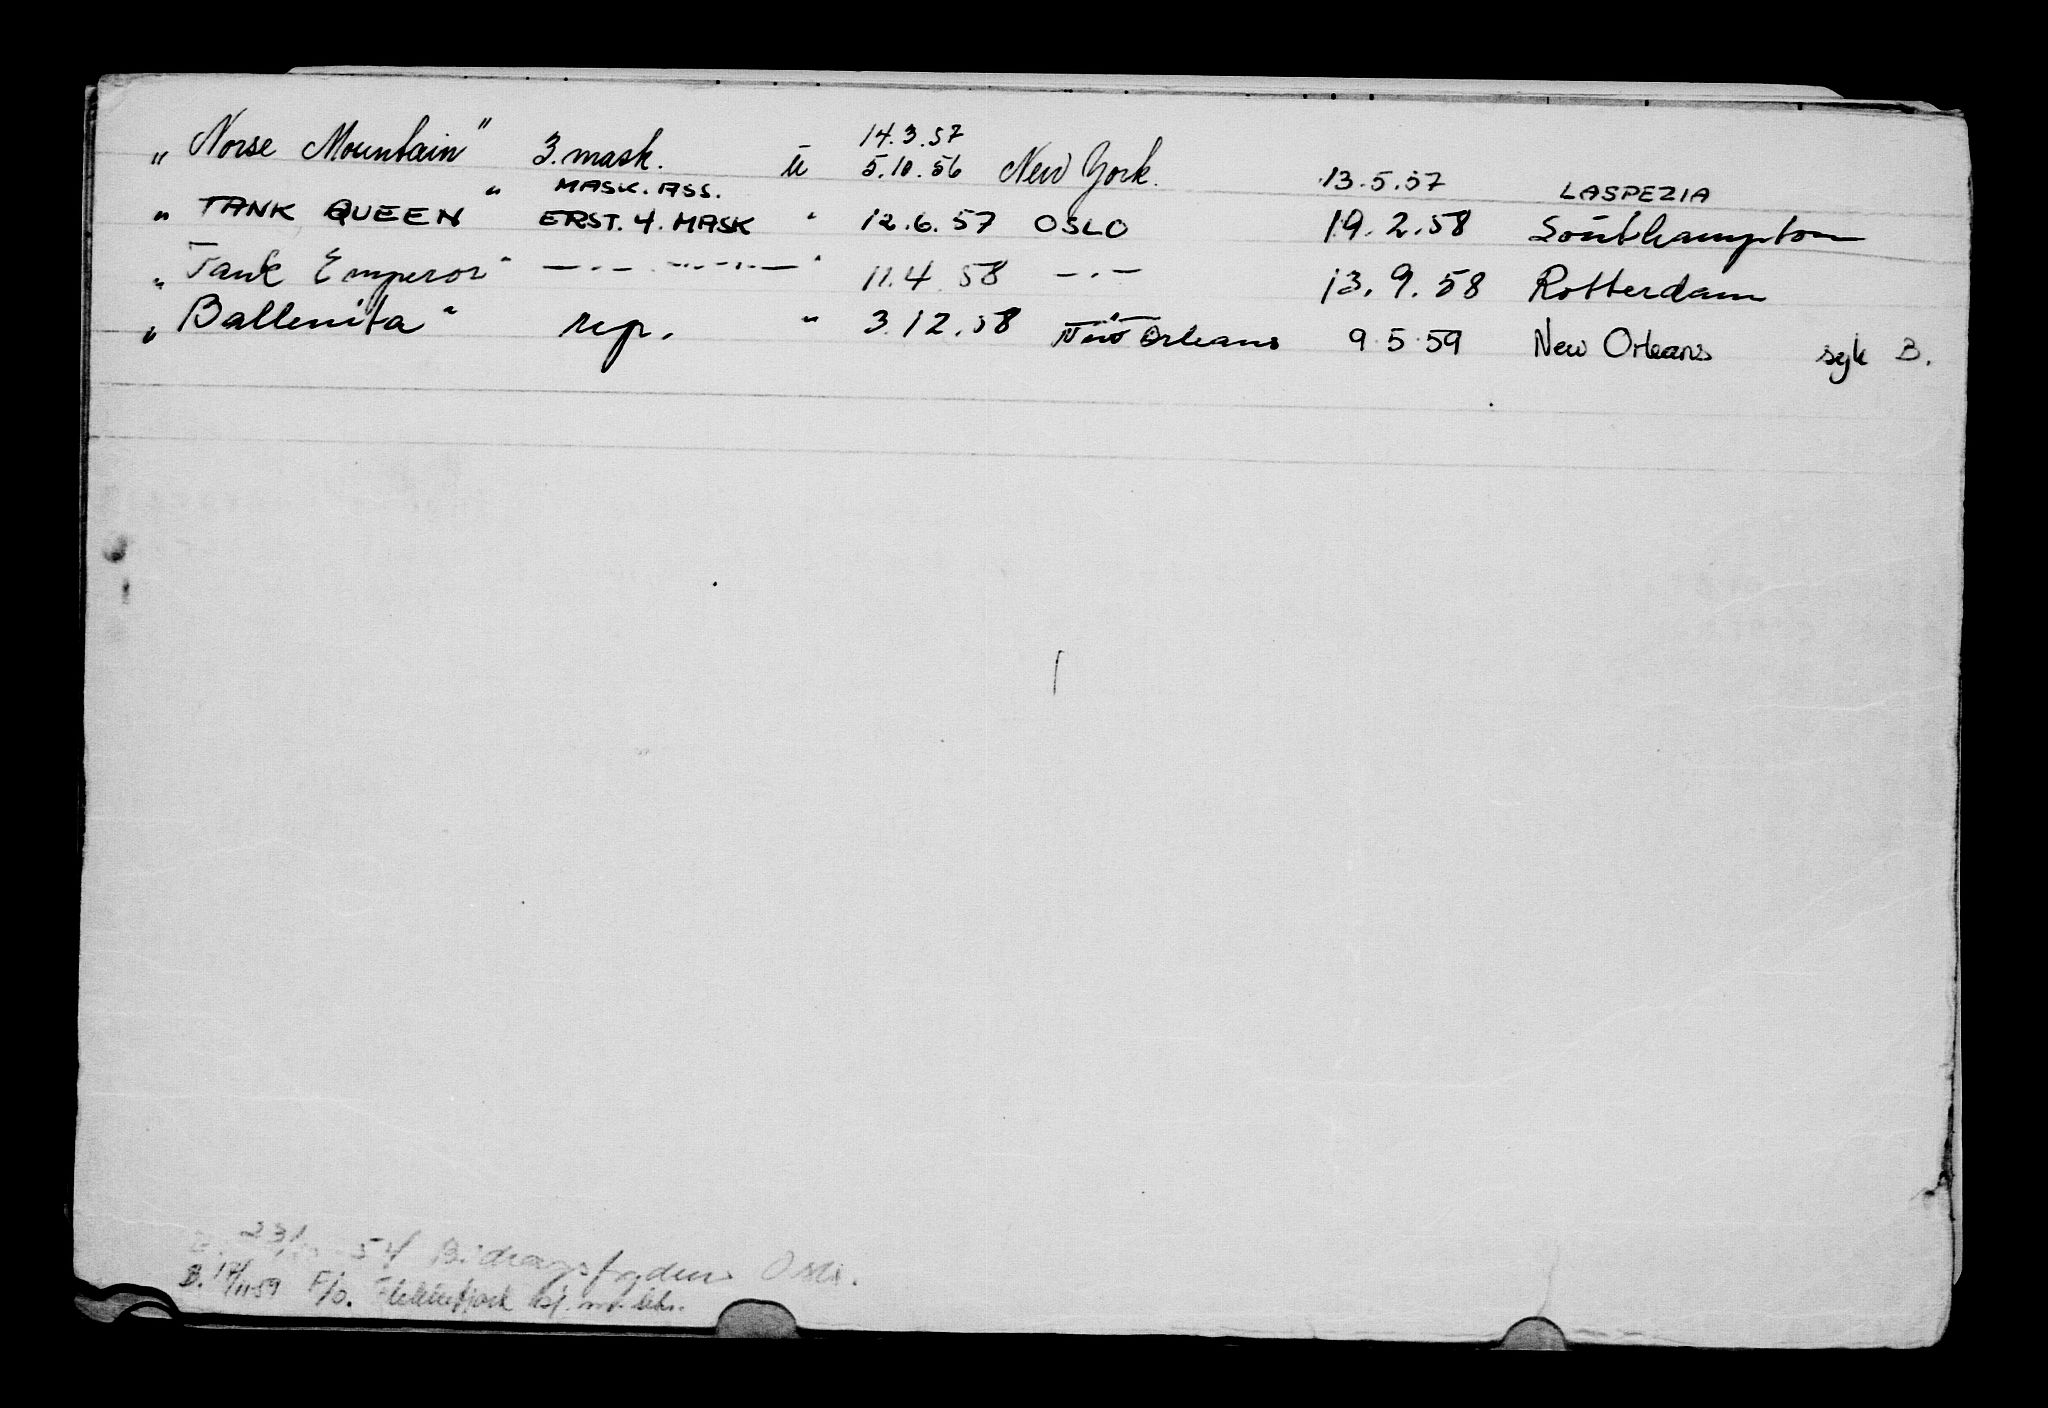 14.3.57
„Norse Mountain" 3. mask. u 5.10.56 New York. 13.5.57 LASPEZIA
MASK. ASS.
„TANK QUEEN" ERST. 4. MASK " 12.6.57 OSLO 19.2.58 Southampton
„Tank Emperor" —·— —··—··— " 11.4.58 —·— 13.9.58 Rotterdam
„Ballenita" rep. " 3.12.58 New Orleans 9.5.59 New Orleans syk B.
23/ 54 Bidragsfogden Oslo.
B. 17/11 59 F/o. Flekkefjord